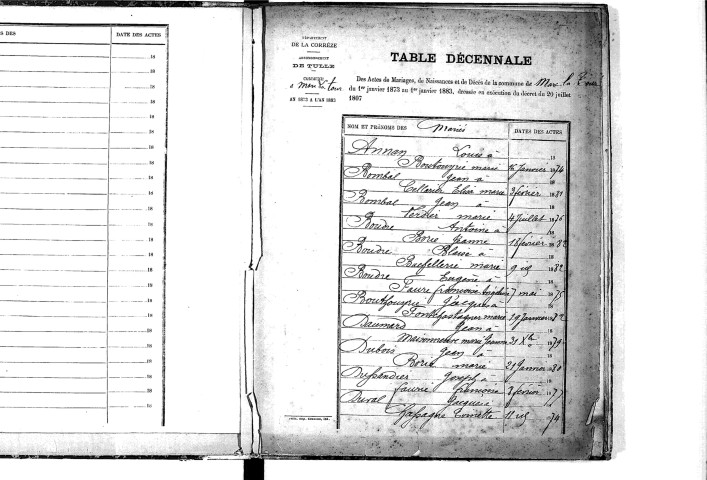 S DES
DATE DES ACTES
18
18
18
18
18
18
18
18
18
18
18
18
18
18
18
18
18
18
18
18
DÉPARTEMENT
DE LA CORRÈZE
ARRONDISSEMENT
DE TULLE
COMMUNE
AN 1873 A L'AN 1883
TABLE DÉCENNALE
Des Actes de Mariages, de Naissances et de Décès de la commune de Marc la Tour
du 1er janvier 1873 au 1er janvier 1883, dressée en exécution du décret du 20 juillet
1807
NOM ET PRÉNOMS DES Mariés
DATES DES ACTES
Annan Louis à
marie 16 Janvier 1874
Bombal Jean à
Cellarier Elisa marie 3 février 1881
Bombal Jean à
Verdier marie 4 Juillet 1876
Boudre Antoine à
Borie Jeanne 18 février 1882
Boudre Blaise à
marie 9 1882
Boudre Eugène à
Faure françoise 7 mai 1875
Jacques à
marie 19 Janvier 1882
Daumard Jean à
Maisonneuve marie Jeanne 21 Xbre 1879
Dubois Jean à
Borie marie 21 Janvier 1880
Dussandier Joseph à
Faurie françoise 7 février 1877
Duval Jacques à
Chassagne Toinette 11 1874